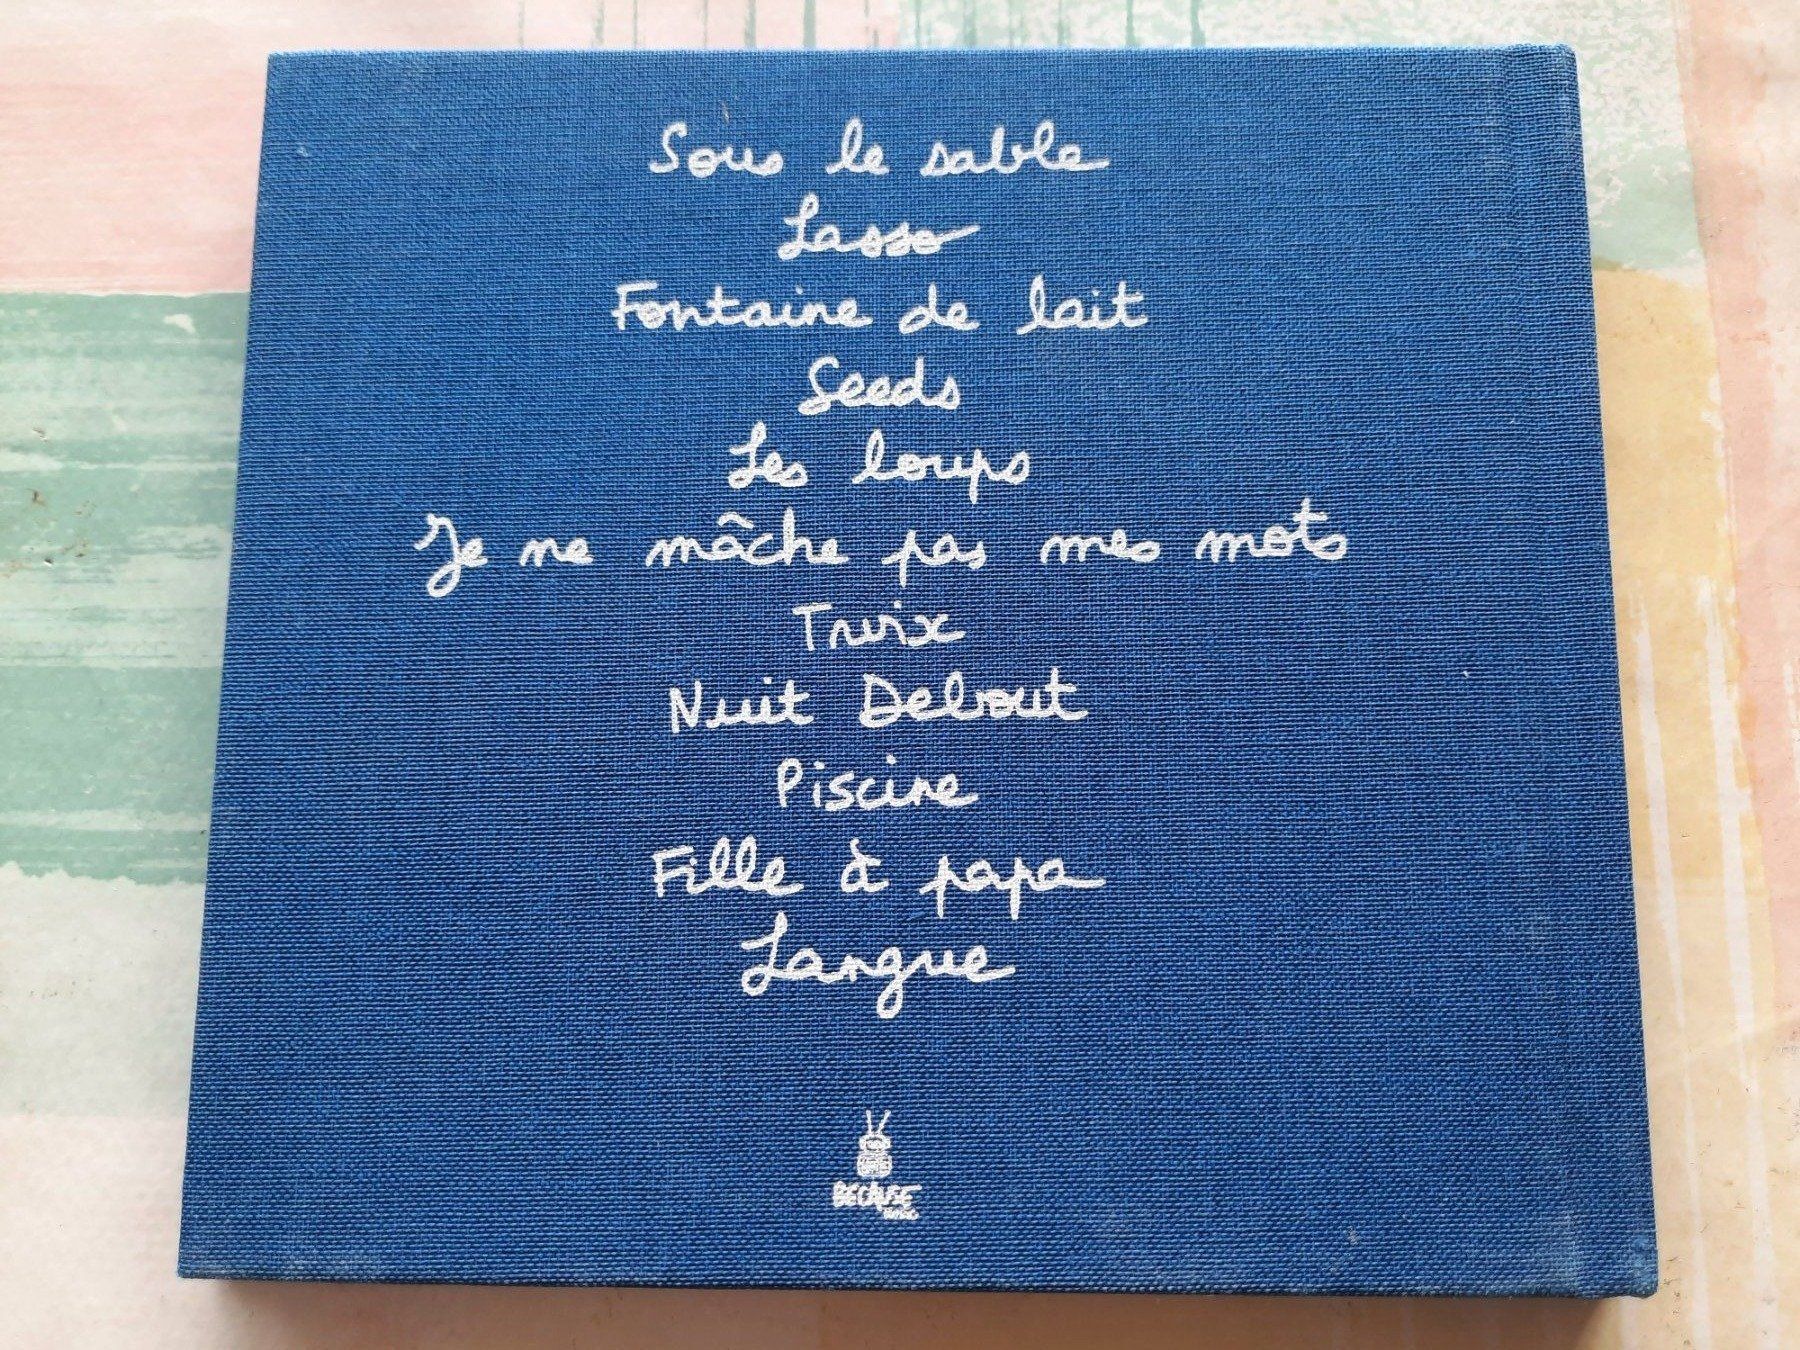 Sous le sable
Lasso
Fontaine de lait
Seeds
Les loups
Je ne mâche pas mes mots
Twix
Nuit Debout
Piscine
Fille à papa
Langue
BECAUSE
MUSIC